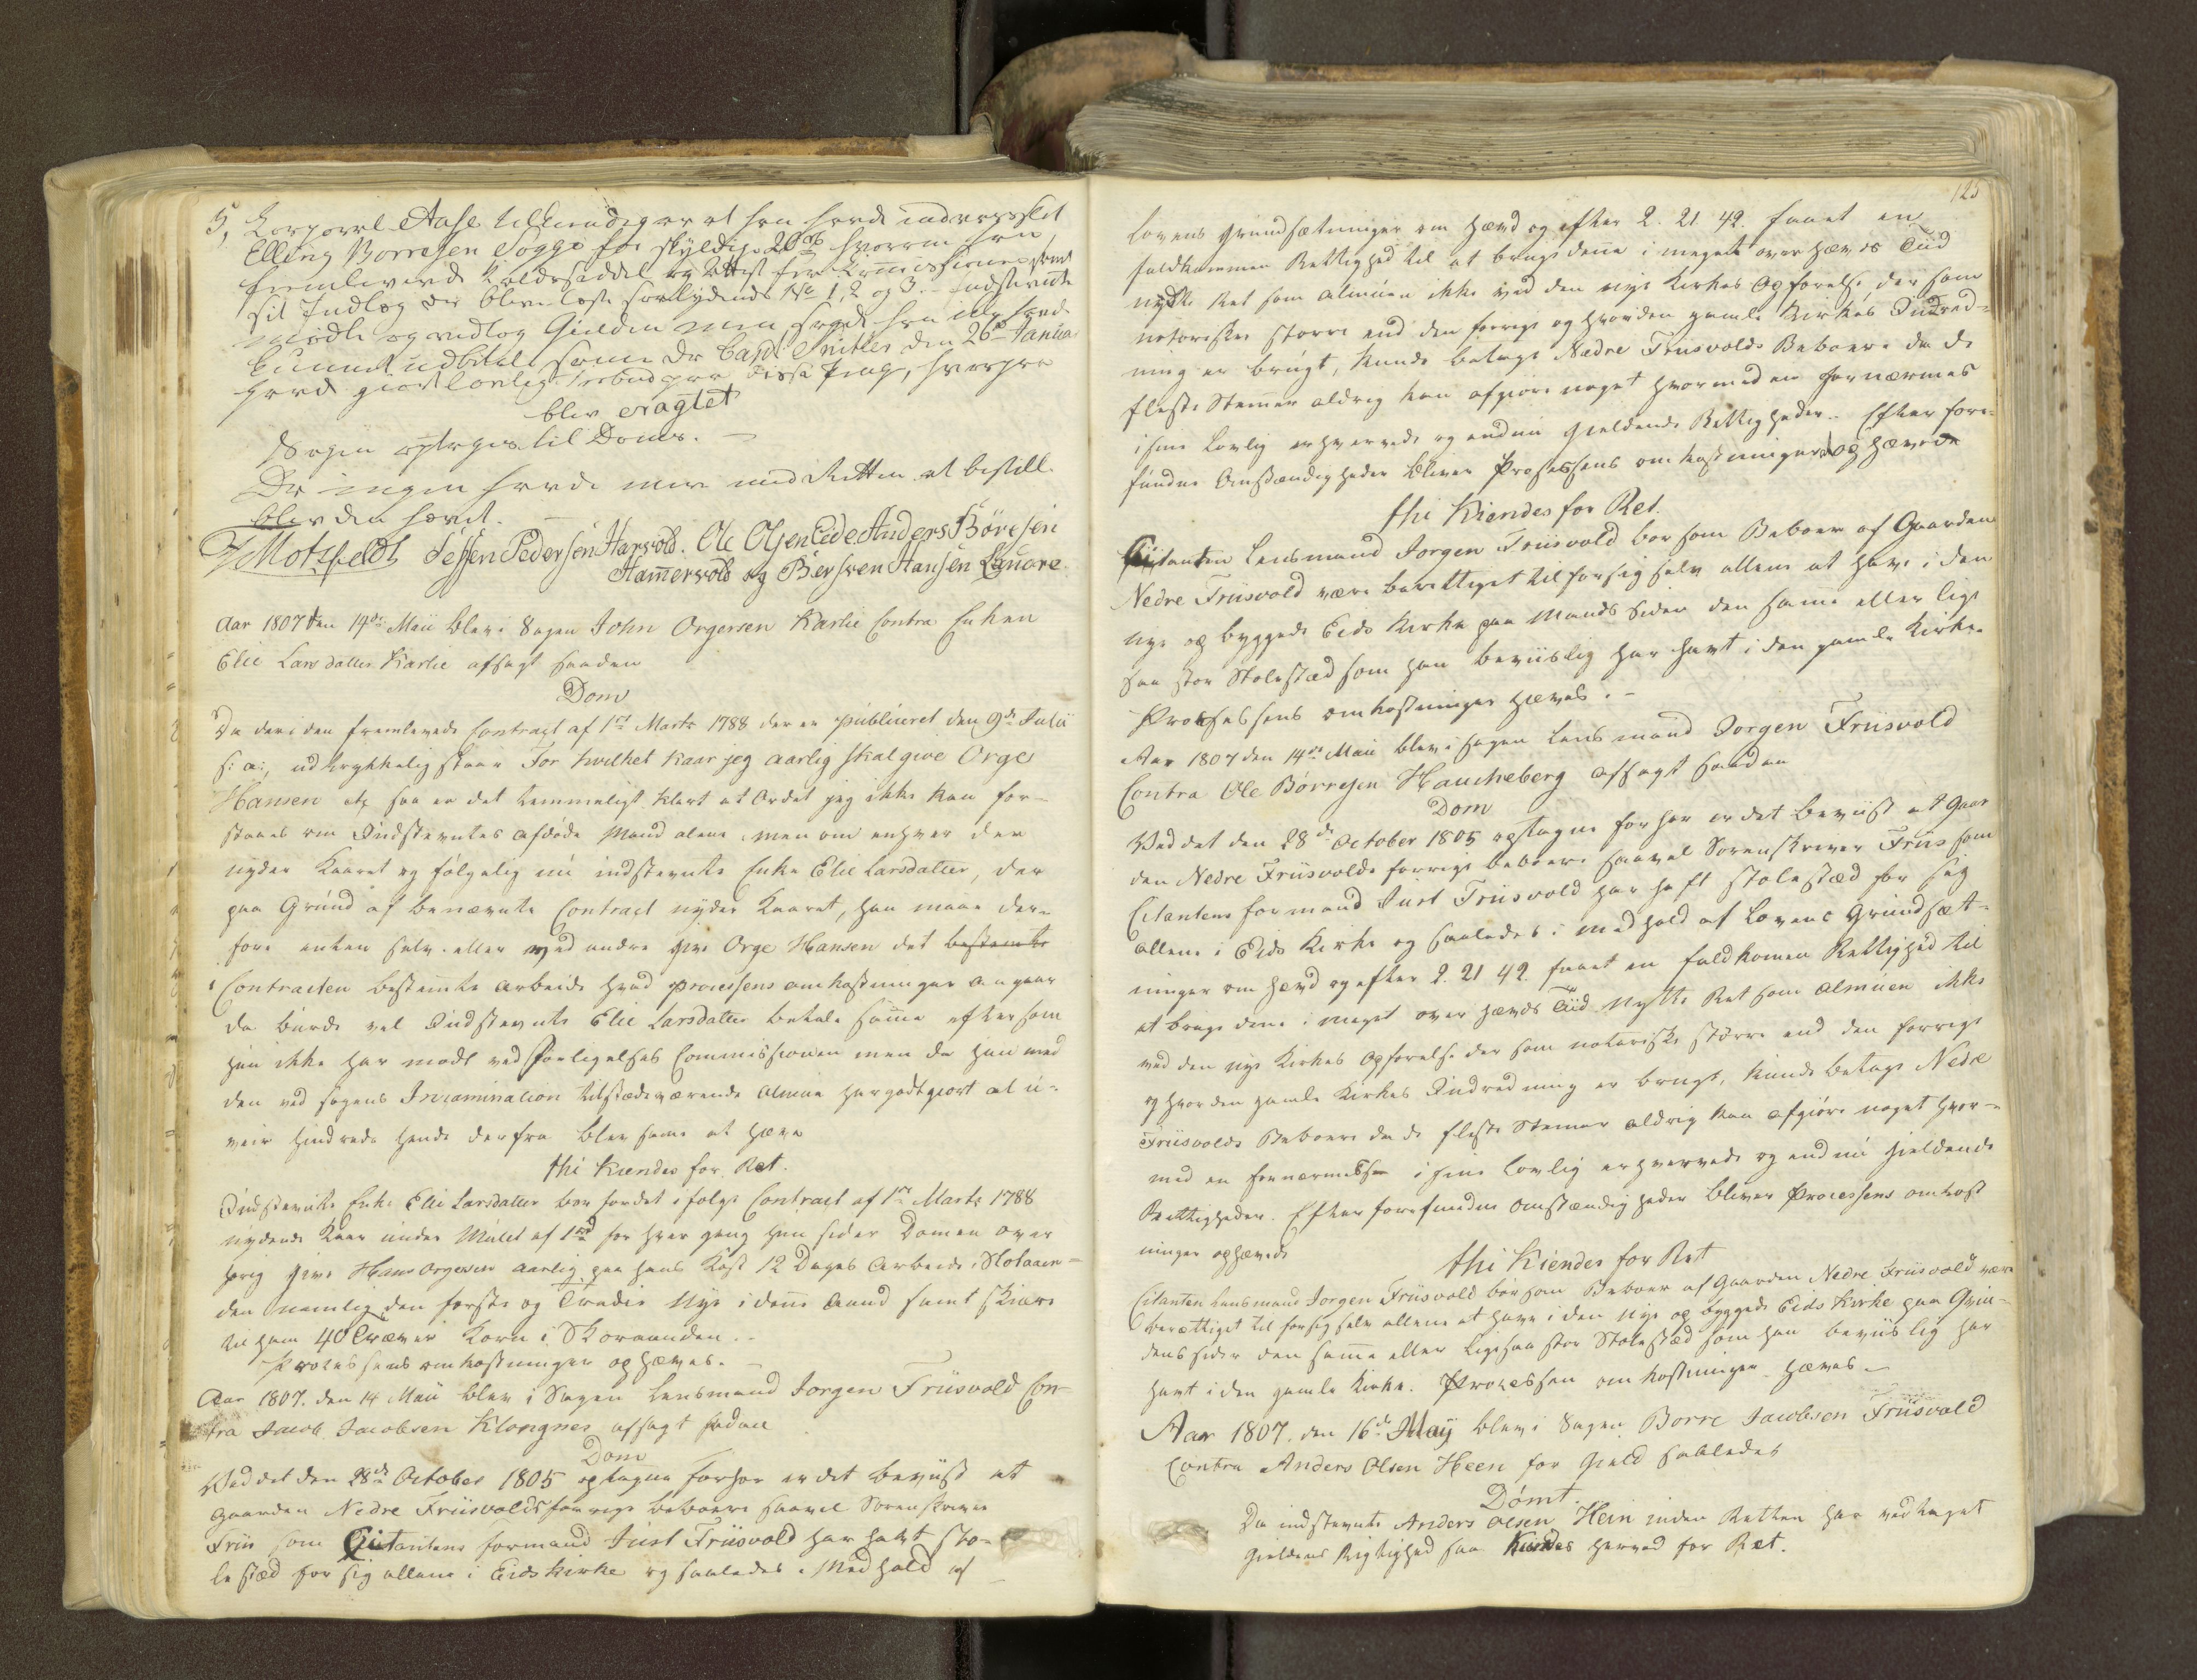 5, Corporal Aase tilkiendegav at han havde indkaldet
Elling Børresen Sogge for skyldig 20 rd hvorom han
fremleverede Kaldseddel og Attest fra Commissionen samt
sit Indlæg der bleve læste saalydende No 1, 2 og 3. Indstevnte
mødte og vedtog Gielden men sagde han ikke havde
kundet udbetale samme da Capt: den 26de Januar
havde giort lovlig Forbud paa disse Penge, hvorpaa
blev eragtet
Sagen optages til Doms. —
Da ingen havde mere med Retten at bestille
blev den hævet. —
J Motzfeldt Jessen Pedersen Harvold. Ole Olsen Eide Anders Børesen
Hammervold og Bersven Hansen
Aar 1807 den 14de Maii blev i Sagen John Orgersen Karlie Contra Enken
Elie Larsdatter Karlie afsagt saadan
Dom
Da der i den fremlevede Contract af 1ste Marts 1788 der er publiceret den 9de Julii
s: a:, udtrykkelig staar For hvilket Kaar jeg aarlig skal give Orge
Hansen etc saa er det temmeligt klart at Ordet jeg ikke kan for-
staaes om Indstevntes afdøde Mand alene, men om enhver der
nyder Kaaret og følgelig nu indstevnte Enke Elie Larsdatter, der
paa Grund af benævnte Contract nyder Kaaret, hun maae der-
fore enten selv eller ved andre give Orge Hansen det bestemte
i Contracten bestemte Arbeide hvad Processens omkostninger angaar
da burde vel Indstevnte Elie Larsdatter betale samme eftersom
hun ikke har mødt ved Forligelses Commissionen men da hun med
den ved sagens Incamination tilstædeværende Almue har godtgiort at u-
veir hindrede hende derfra blev samme at hæve
thi kiendes for Ret.
Indstevnte Enke Elie Larsdatter bør for det ifølge Contract af 1ste Marts 1788
nydende Kaar under Mulct af 1rd for hver gang hun sidder Dommen over-
hørig give Hans Orgesen aarlig paa hans Kost 12 Dages Arbeide i Slotaan-
den nemlig den første og Tredie Uge i denne Aand samt skiære
til ham 40 Træver Korn i Skoraanden. —
Processens omkostninger ophæves. —
Aar 1807. den 14 Maii blev i Sagen Lensmand Jorgen Friisvold Con-
tra Jacob Jacobsen Klongnes afsagt sadan
Dom
Ved det den 28de October 1805 optagne forhør er det beviist at
Gaarden Nedre Friisvolds forrige beboere saavel Sorenskriver
Friis som Citantens formand Just Friisvold har havt sto-
lestæd for sig allene i Eids Kirke og saaledes i Medhold af
125
Lovens grundsætninger om hævd og efter 2. 21. 42. faaet en
fuldkommen Rettighed til at bruge denne i meget over hævds Tiid
nydte Ret som Almuen ikke ved den nye Kirkes Opførelse, der som
notoriske større end den forrige og hvor den gamle Kirkes Indred-
ning er brugt, kunde betage Nedre Friisvolds Beboere da de
fleste Stemer aldrig kan afgiøre noget hvormed en fornærmes
i sine Lovlig erhvervede og endnu gieldende Rettigheder. Efter fore-
fundne Omstændigheder bliver Processens omkostninger ophævede
thi kiendes for Ret.
Citanten Lensmand Jorgen Friisvold bør som Beboer af Gaarden
Nedre Friisvold være berettiget til for sig selv allene at have i den
nye op byggede Eids Kirke paa Mands Siden den same eller lige
saa stor Stolestæd som han beviislig har havt i den gamle Kirke.
Processens omkostninger hæves. —
Aar 1807 den 14de Maii blev i sagen Lensmand Jorgen Friisvold
Contra Ole Børresen Haucheberg afsagt saadan
Dom
Ved det den 28de October 1805 optagne forhør er det beviist at Gaar
den Nedre Friisvolds forrige beboere saavel Sorenskriver Friis som
Citantens formand Just Friisvold har haft stolestæd for sig
allene i Eids Kirke og saaledes i medhold af Lovens Grundsæt-
ninger om hævd og efter 2. 21 42. faaet en fuldkomen Rettighed til
at bruge dene i meget over hævds Tiid nytte Ret som Almuen ikke
ved den nye Kirkes Opførelse der som notoriske større end den forrige
og hvor den gamle Kirkes Indredning er brugt, kunde betage Nedre
Friisvolds Beboere da de fleste Stemer aldrig kan afgiøre noget hvor-
med en fornærmelse i sine lovlig erhvervede og endnu gieldende
Rettigheder. Efter forefundne omstændigheder bliver Processens omkost
ninger ophævede
thi kiendes for Ret
Citanten Lensmand Jorgen Friisvold bør som Beboer af Gaarden Nedre Friisvold være
berættiget til for sig selv allene at have i den nye op byggede Eids Kirke paa Qvin-
dens sider den samme eller ligesaa stor Stolestæd som han beviislig har
havt i den gamle Kirke. Processen omkostninger hæves. —
Aar 1807. den 16de May blev i Sagen Borre Jacobsen Friisvold
Contra Anders Olsen Heen for Gield saaledes
Dømt.
Da indstevnte Anders Olsen Hein inden Retten har vedtaget
Gieldens Rigtighed saa kiendes herved for Ret.